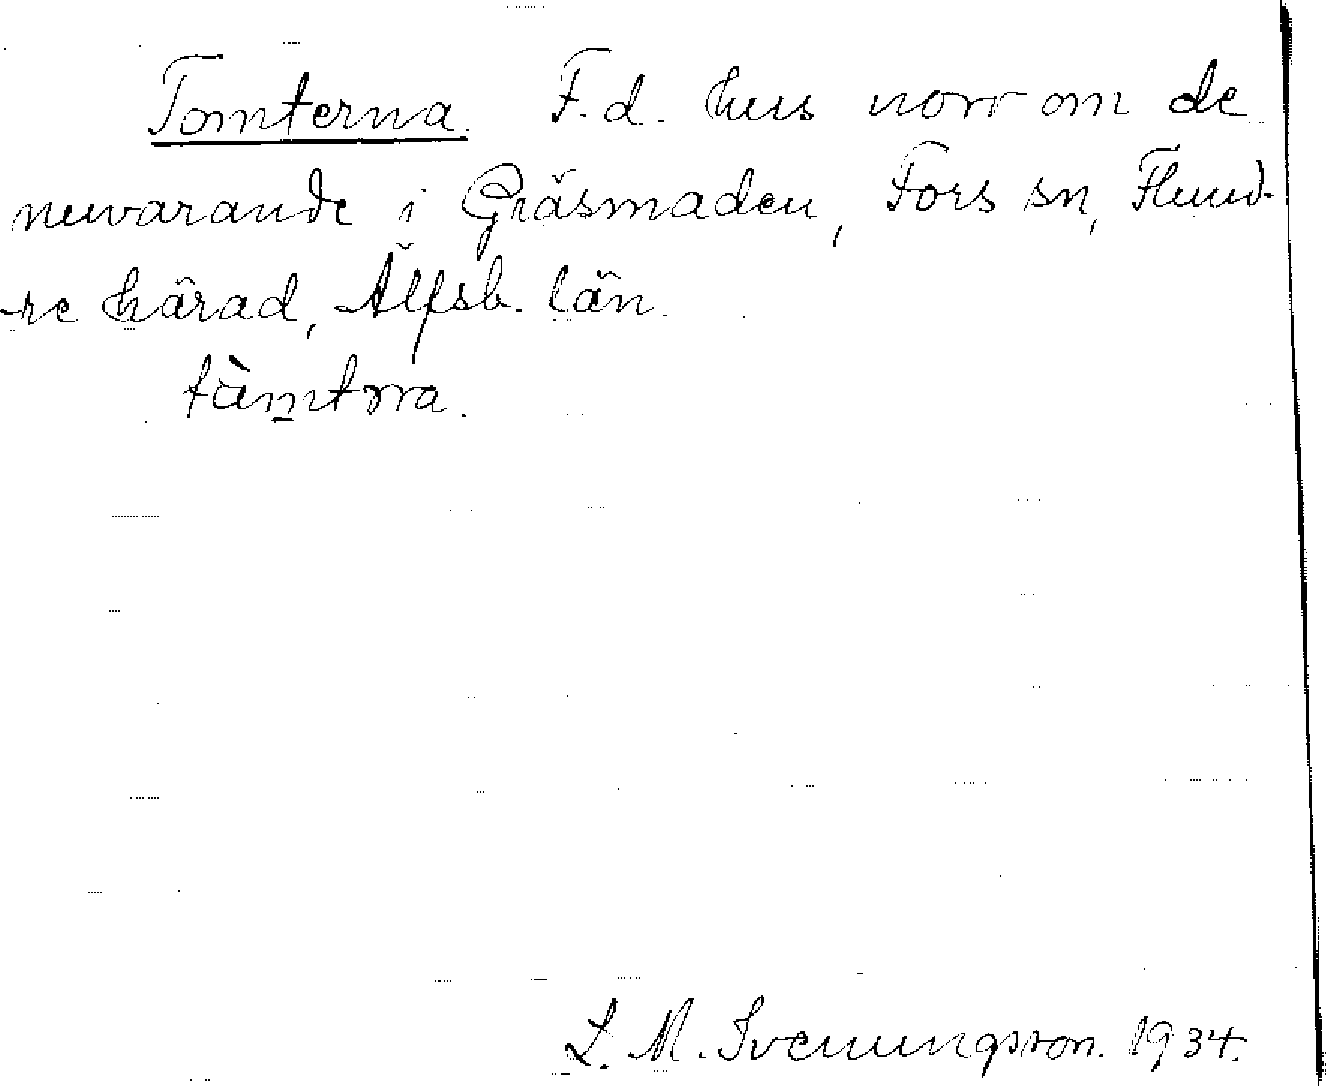 Tomterna. F.d. hus norr om de
nuvarande i Gräsmaden, Fors sn, Flund-
re härad, Älfsb. län.
tàmtṛra.
L. M. Svenungsson. 1934.